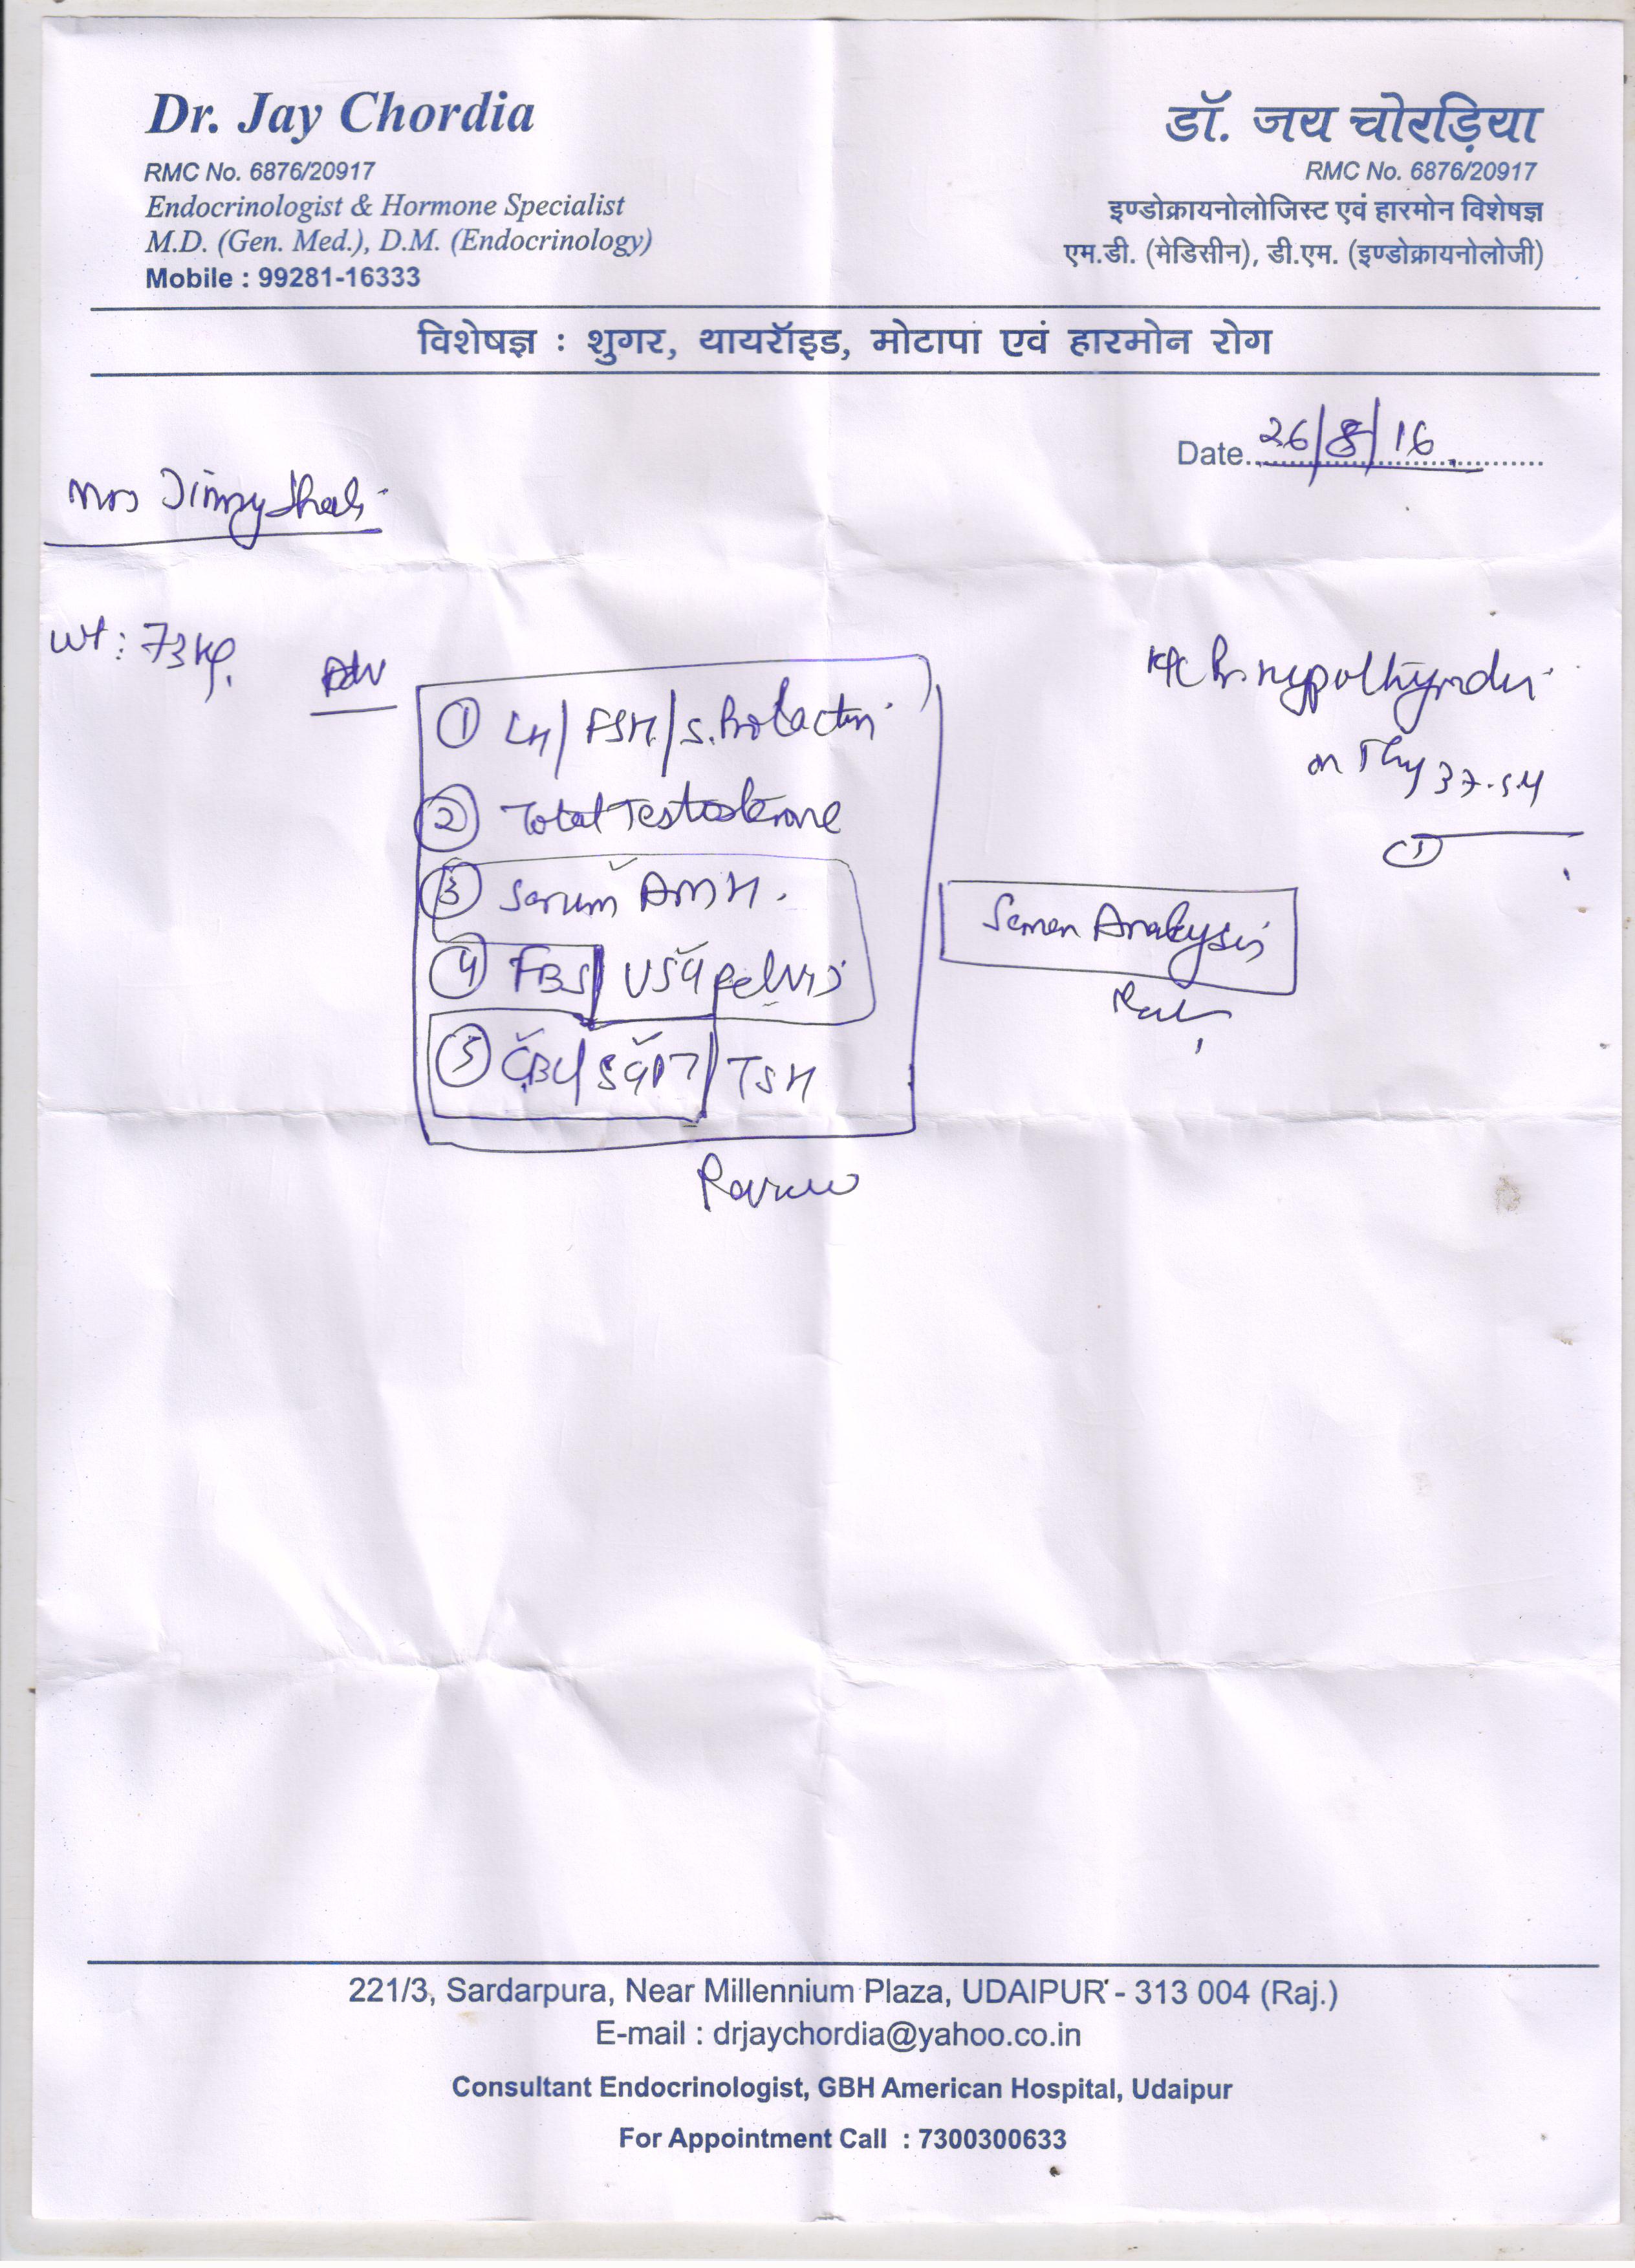 Dr. Jay Chordia
RMC No. 6876/20917
Endocrinologist & Hormone Specialist
M.D. (Gen. Med.), D.M. (Endocrinology)
Mobile : 99281-16333
डॉ. जय चोरड़िया
RMC No. 6876/20917
इण्डोक्रायनोलोजिस्ट एवं हारमोन विशेषज्ञ
एम.डी. (मेडिसीन), डी.एम. (इण्डोक्रायनोलोजी)
विशेषज्ञ : शुगर, थायरॉइड, मोटापा एवं हारमोन रोग
Date 26/8/16
Mrs
Wt: 73 kg.
Adv
① LH/FSH/S. Prolactin
② Total Testosterone
③ Serum AMH.
④ FBS/USG pelvis
⑤ CBC/SGPT/TSH
Review
hypothyroidism
on Thy 37.5
Semen Analysis
221/3, Sardarpura, Near Millennium Plaza, UDAIPUR - 313 004 (Raj.)
E-mail : drjaychordia@yahoo.co.in
Consultant Endocrinologist, GBH American Hospital, Udaipur
For Appointment Call : 7300300633